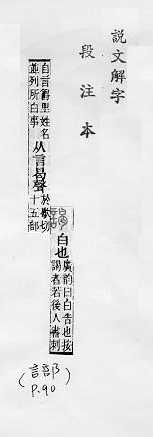 説文解字
段注本
白也
廣韵曰白告也按
謁者若後人書刺
自言爵里姓名
並列所白事
从言曷聲
於歇切
十五部
(言部)
P.90